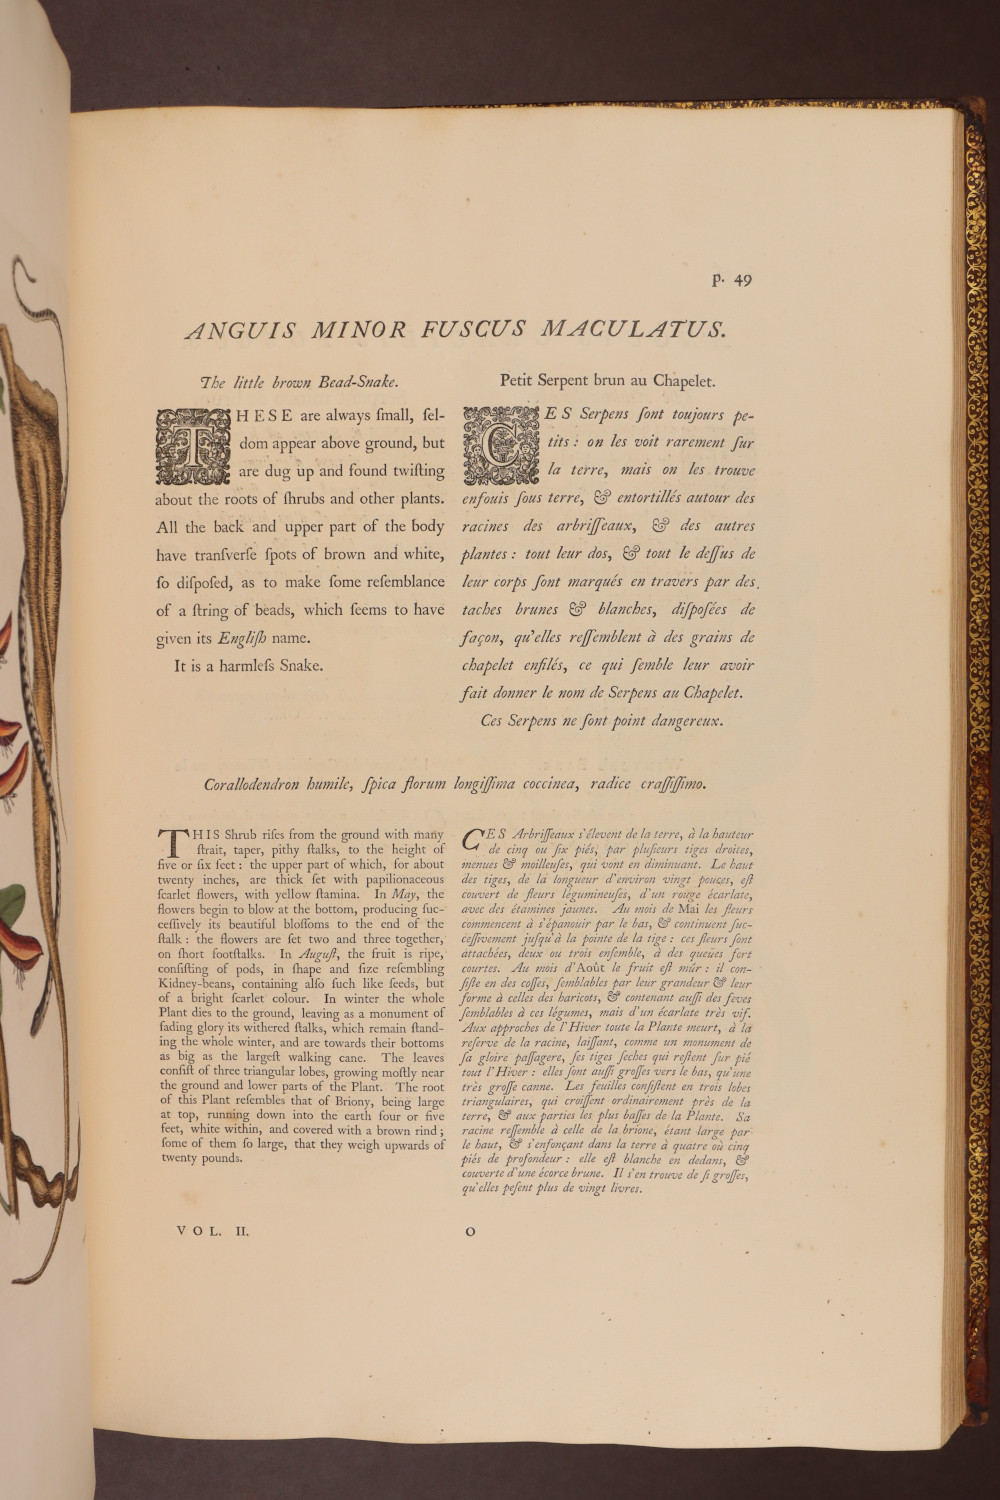 p. 49
ANGUIS MINOR FUSCUS MACULATUS.
The little brown Bead-Snake.
THESE are always ſmall, ſel-
dom appear above ground, but
are dug up and found twiſting
about the roots of ſhrubs and other plants.
All the back and upper part of the body
have tranſverſe ſpots of brown and white,
ſo diſpoſed, as to make ſome reſemblance
of a ſtring of beads, which ſeems to have
given its Engliſh name.
It is a harmleſs Snake.
Petit Serpent brun au Chapelet.
CES Serpens ſont toujours pe-
tits : on les voit rarement ſur
la terre, mais on les trouve
enfouis ſous terre, & entortillés autour des
racines des arbriſſeaux, & des autres
plantes : tout leur dos, & tout le deſſus de
leur corps ſont marqués en travers par des
taches brunes & blanches, diſpoſées de
façon, qu'elles reſſemblent à des grains de
chapelet enfilés, ce qui ſemble leur avoir
fait donner le nom de Serpens au Chapelet.
Ces Serpens ne ſont point dangereux.
Corallodendron humile, ſpica florum longiſſima coccinea, radice craſſiſſimo.
THIS Shrub riſes from the ground with many
ſtrait, taper, pithy ſtalks, to the height of
five or ſix feet : the upper part of which, for about
twenty inches, are thick ſet with papilionaceous
ſcarlet flowers, with yellow ſtamina. In May, the
flowers begin to blow at the bottom, producing ſuc-
ceſſively its beautiful bloſſoms to the end of the
ſtalk : the flowers are ſet two and three together,
on ſhort footſtalks. In Auguſt, the fruit is ripe,
conſiſting of pods, in ſhape and ſize reſembling
Kidney-beans, containing alſo ſuch like ſeeds, but
of a bright ſcarlet colour. In winter the whole
Plant dies to the ground, leaving as a monument of
fading glory its withered ſtalks, which remain ſtand-
ing the whole winter, and are towards their bottoms
as big as the largeſt walking cane. The leaves
conſiſt of three triangular lobes, growing moſtly near
the ground and lower parts of the Plant. The root
of this Plant reſembles that of Briony, being large
at top, running down into the earth four or five
feet, white within, and covered with a brown rind ;
ſome of them ſo large, that they weigh upwards of
twenty pounds.
CES Arbriſſeaux s'élevent de la terre, à la hauteur
de cinq ou ſix piés, par pluſieurs tiges droites,
menues & moilleuſes, qui vont en diminuant. Le haut
des tiges, de la longueur d'environ vingt pouces, eſt
couvert de fleurs légumineuſes, d'un rouge écarlate,
avec des étamines jaunes. Au mois de Mai les fleurs
commencent à s'épanouir par le bas, & continuent ſuc-
ceſſivement juſqu'à la pointe de la tige : ces fleurs ſont
attachées, deux ou trois enſemble, à des queues fort
courtes. Au mois d'Août le fruit eſt mûr : il con-
ſiſte en des coſſes, ſemblables par leur grandeur & leur
forme à celles des haricots, & contenant auſſi des feves
ſemblables à ces légumes, mais d'un écarlate très vif.
Aux approches de l'Hiver toute la Plante meurt, à la
reſerve de la racine, laiſſant, comme un monument de
ſa gloire paſſagere, ſes tiges ſeches qui reſtent ſur pié
tout l'Hiver : elles ſont auſſi groſſes vers le bas, qu'une
très groſſe canne. Les feuilles conſiſtent en trois lobes
triangulaires, qui croiſſent ordinairement près de la
terre, & aux parties les plus baſſes de la Plante. Sa
racine reſſemble à celle de la brione, étant large par
le haut, & s'enfonçant dans la terre à quatre où cinq
piés de profondeur : elle eſt blanche en dedans, &
couverte d'une écorce brune. Il s'en trouve de ſi groſſes,
qu'elles peſent plus de vingt livres.
VOL. II.
O